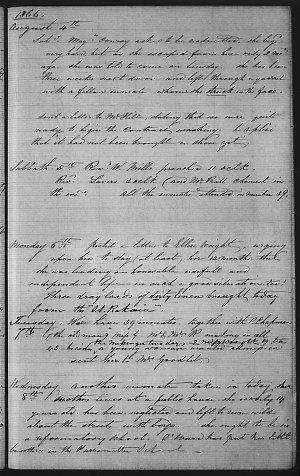 1866.
August 4th
Sat. May Conroy asked to be readmitted she beg
very hard but as she escaped from here only 2 mos
ago. she was told to come on Tuesday. she has been
three weeks next door and left through a quarrel
with a fellow inmate whom she struck in the face.
Sent a letter to Mr Hills, stating that we were quite
ready to begin the Contract, washing. he replies
that it has not been brought on shore yet,
Sabbath 5th Revd W. Mills preached 11 oclk.
Revd Savers 3 oclk (and Mr Hall
the
all the inmates attended. in number 39.
Monday 6th posted a letter to Ellen Wright, urging
upon her to stay (at least) her 12 months that
she was leading an honorable useful and
independent life in such a good situation too!
Three dray loads of dirty linen brought, today
from the
Tuesday Now have 39 inmates, together with
7th (the old man) myself & Mr R making in all
43
sent here by Mr Goodlet,
Wednesday another inmate taken in today, her
8th mother lives at a public house. she is only 14
years old. has been neglected and left to run wild
about the streets with boys. she ought to be in
a reformatory school. has put her little
brothers in the Parramatta